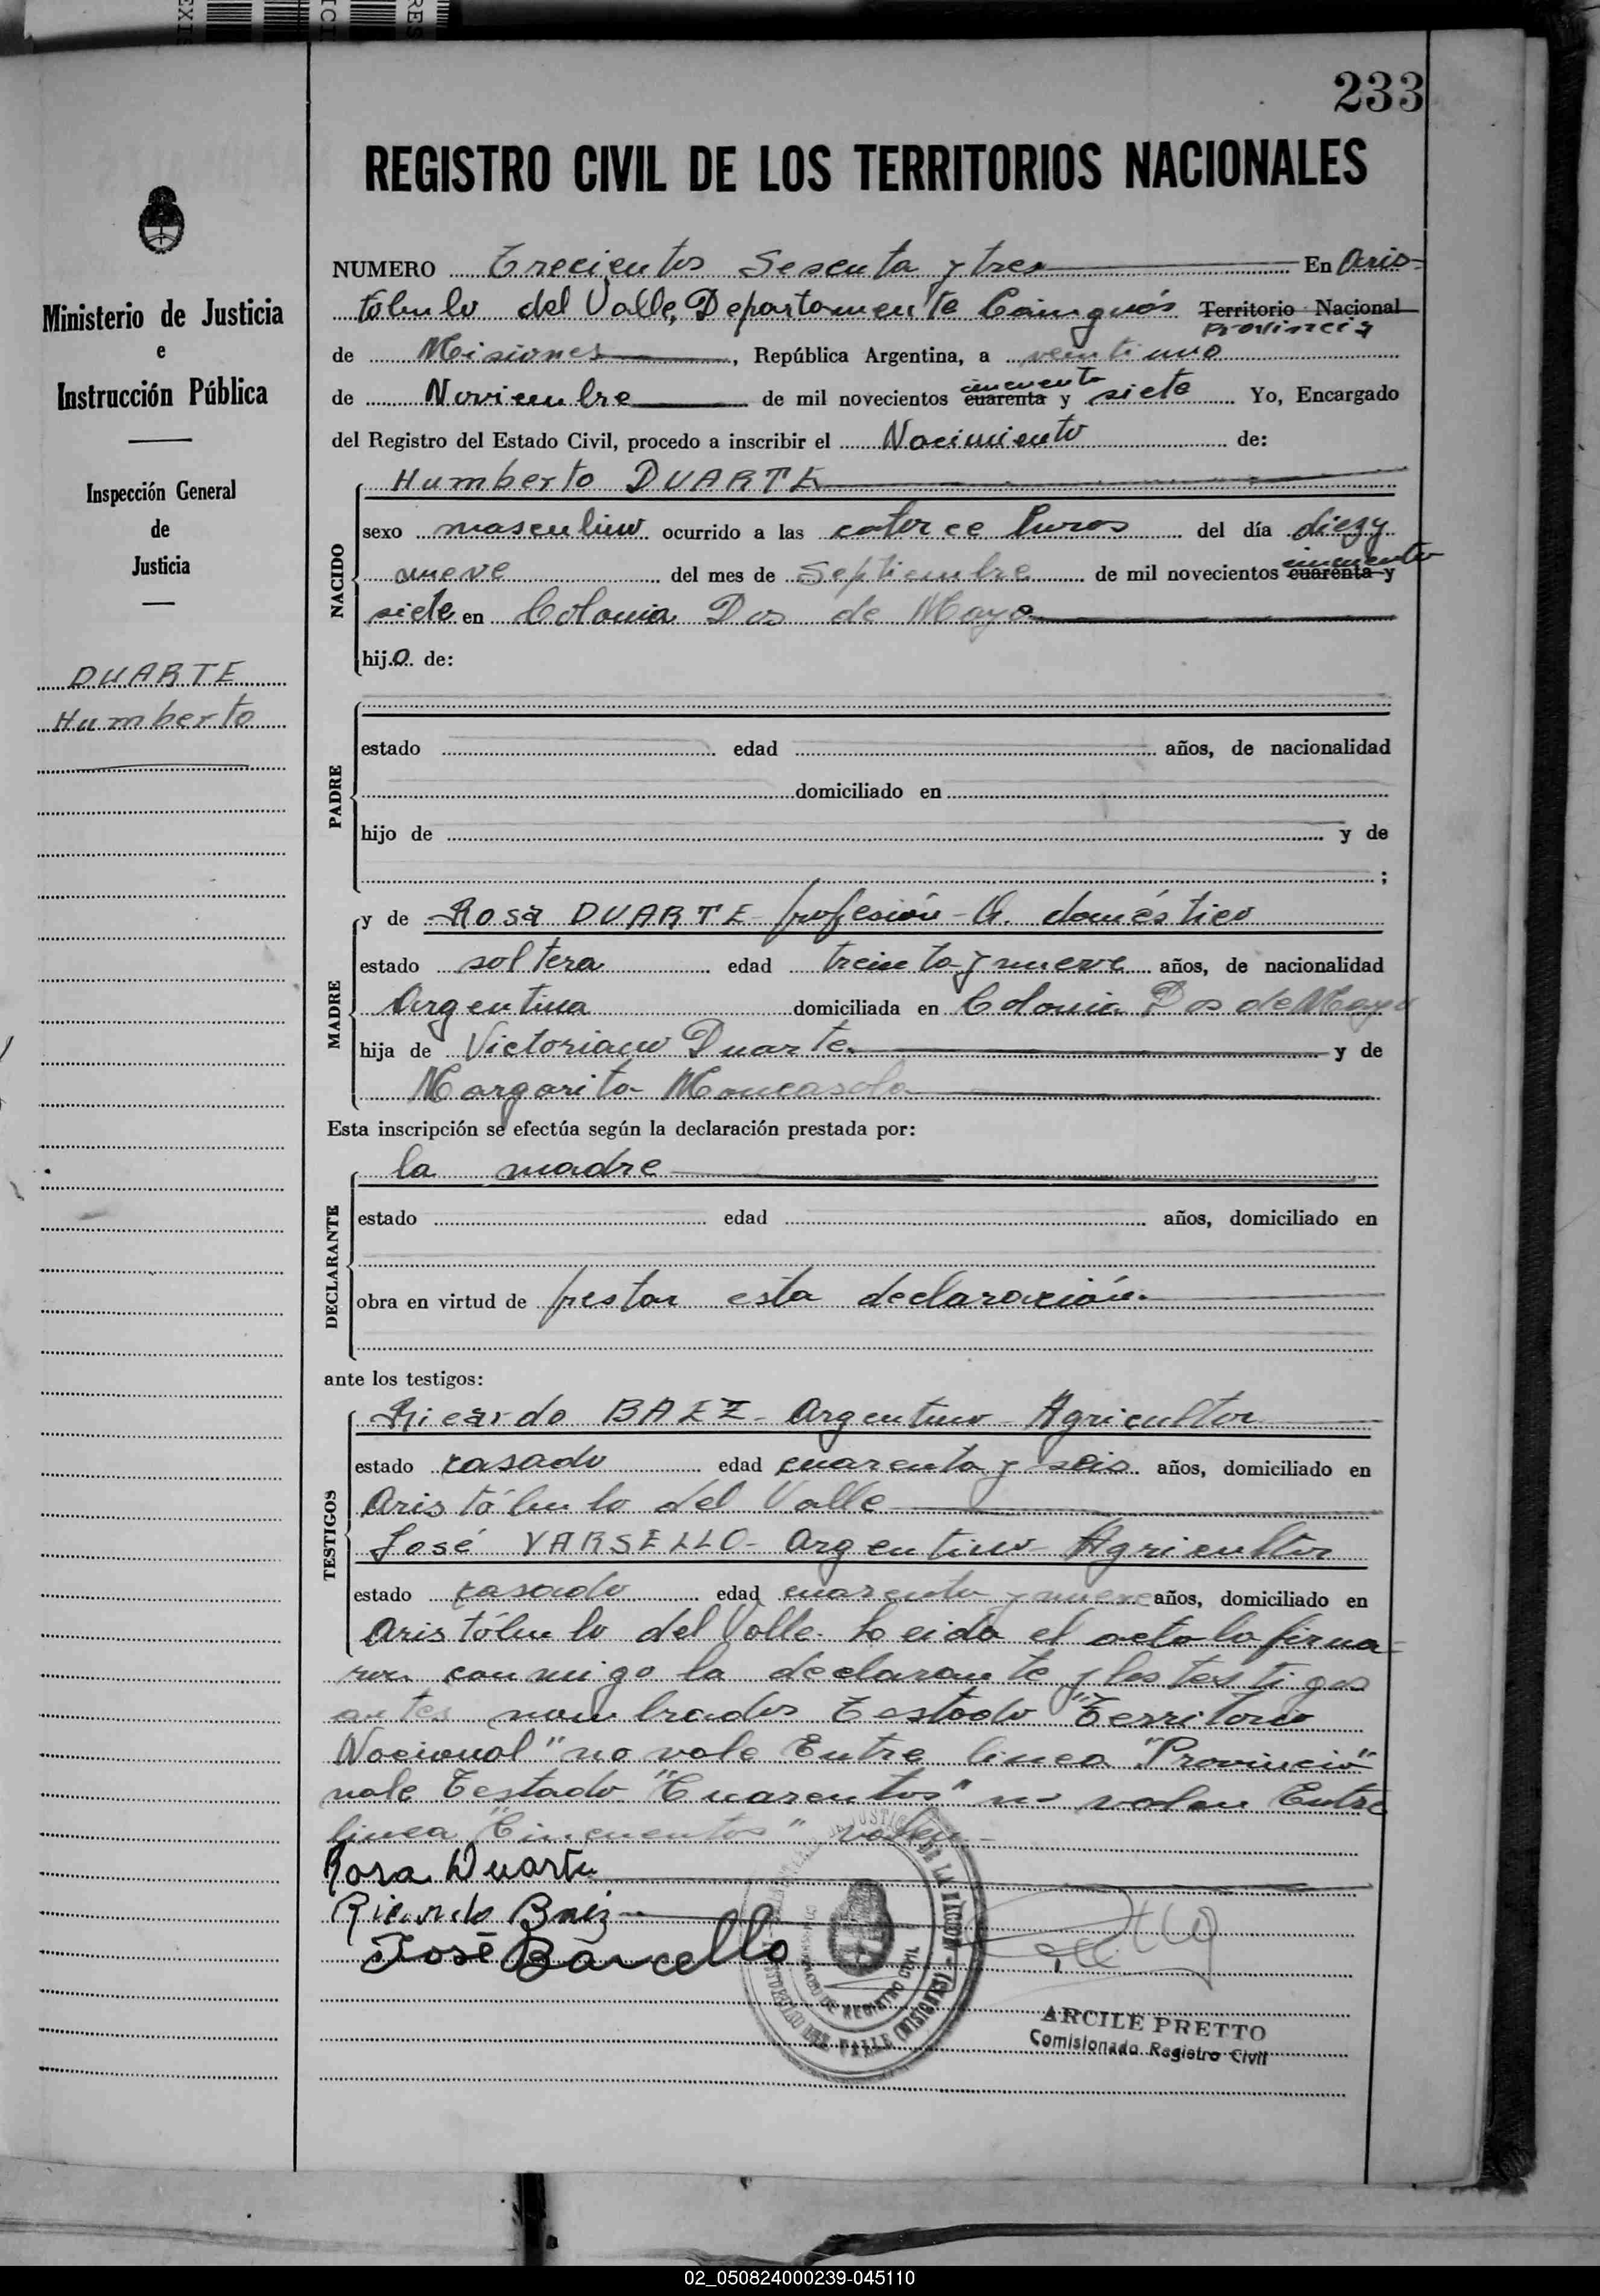 233
REGISTRO CIVIL DE LOS TERRITORIOS NACIONALES
Ministerio de Justicia
e
Instrucción Pública
Inspección General
de
Justicia
DUARTE
Humberto
NUMERO Trecientos Sesenta y tres En Aris-
tóbulo del Valle, Departamento Cainguás Territorio Nacional
Provincia
de Misiones, República Argentina, a veintiuno
cincuenta
de Noviembre de mil novecientos cuarenta y siete Yo, Encargado
del Registro del Estado Civil, procedo a inscribir el Nacimiento de:
NACIDO
Humberto DUARTE
sexo masculino ocurrido a las catorce horas del día diez y
cincuenta
nueve del mes de Septiembre de mil novecientos cuarenta y
siete en Colonia Dos de Mayo
hijo de:
PADRE
estado edad años, de nacionalidad
domiciliado en
hijo de y de
;
MADRE
y de Rosa DUARTE profesión Q. doméstico
estado soltera edad treinta y nueve años, de nacionalidad
Argentina domiciliada en Colonia Dos de Mayo
hija de Victoriano Duarte y de
Margarita
Esta inscripción se efectúa según la declaración prestada por:
DECLARANTE
la madre
estado edad años, domiciliado en
obra en virtud de prestar esta declaración.
ante los testigos:
TESTIGOS
Ricardo BAEZ - Argentino - Agricultor
estado casado edad cuarenta y seis años, domiciliado en
Aristóbulo del Valle
José VARSELLO - Argentino - Agricultor
estado casado edad cuarenta y nueve años, domiciliado en
Aristóbulo del Valle. Leida el acta la firma-
ron conmigo la declarante y los testigos
antes nombrados Testado "Territorio
Nacional" no vale Entre linea "Provincia"
vale Testado "Cuarentas" no valen Entre
linea "Cincuentas" valen-
Rosa Duarte
Ricardo Baez
José Barcello
ARISTOBULO DEL VALLE (MISIONES)
ARCILE PRETTO
Comisionado Registro Civil
02_050824000239-045110